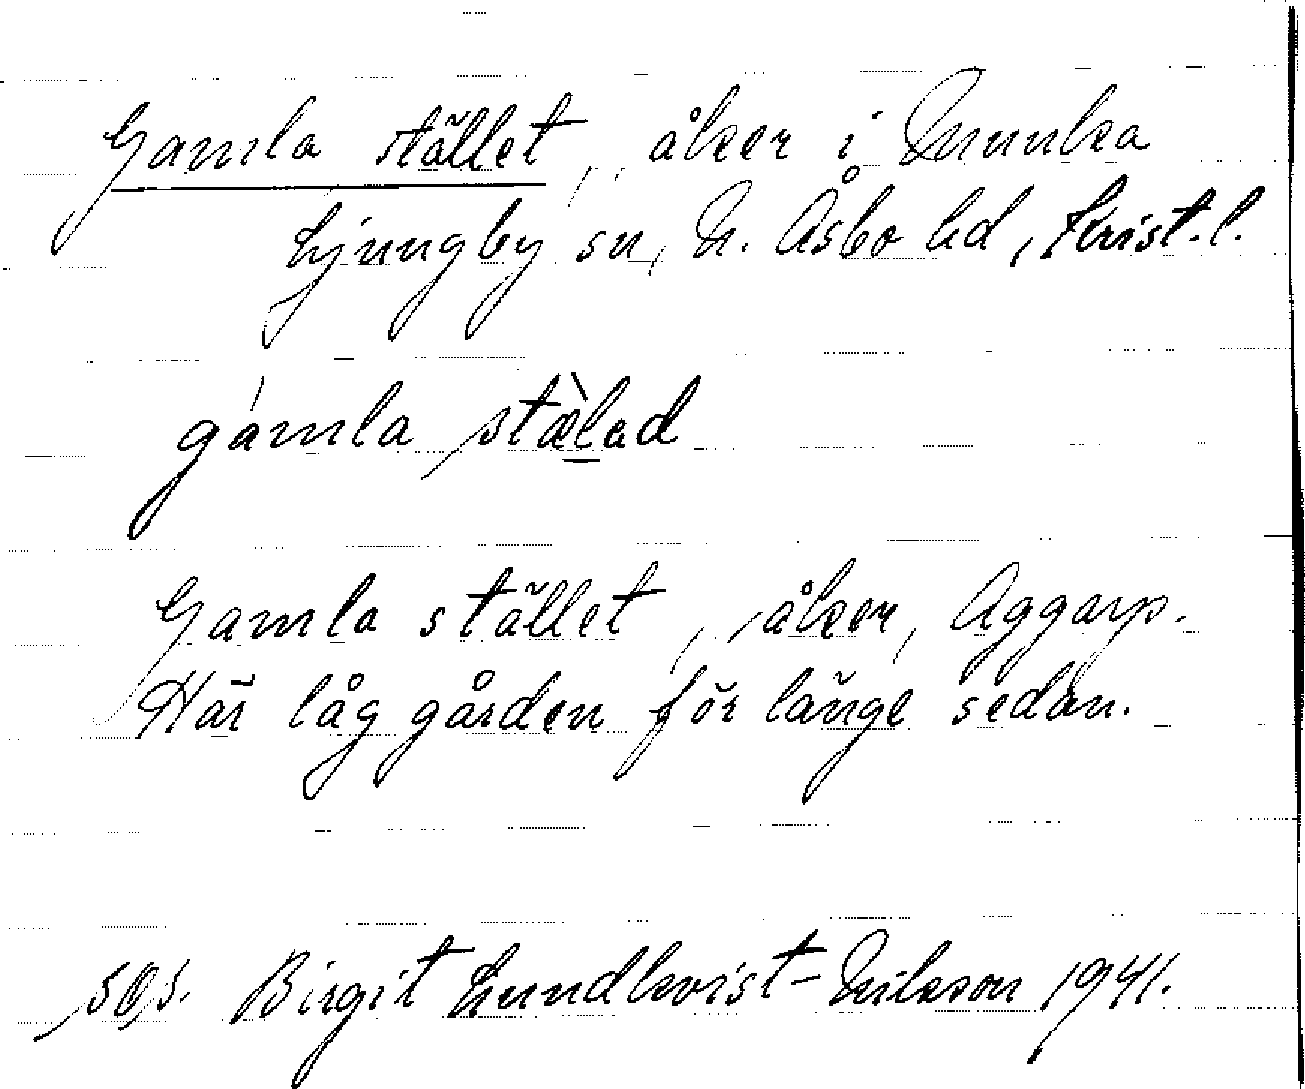 Gamla stället, åker i Munka
Ljungby sn, N. Åsbo hd, Krist. l.
gamla stælǝd
Gamla stället, åker, Aggarp.
Här låg gården för länge sedan.
Birgit Lundkvist-Nilsson 1941.